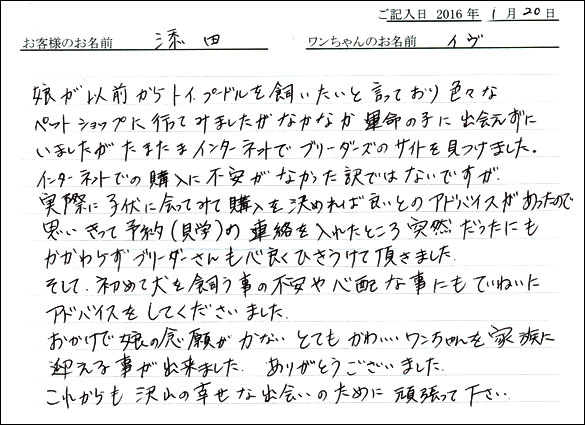 ご記入日 2016年 1月20日
お客様のお名前 添田 ワンちゃんのお名前 イヴ
娘が以前からトイプードルを飼いたいと言っており色々な
ペットショップに行ってみましたがなかなか運命の子に出会えずに
いましたがたまたまインターネットでブリーダーズのサイトを見つけました。
インターネットでの購入に不安がなかった訳ではないですが、
実際に子犬に会ってみて購入を決めれば良いとのアドバイスがあったので
思いきって予約(見学)の連絡を入れたところ突然だったにも
かかわらずブリーダーさんも心良くひきうけて頂きました。
そして、初めて犬を飼う事の不安や心配な事にもていねいに
アドバイスをしてくださいました。
おかげで娘の念願がかないとてもかわいいワンちゃんを家族に
迎える事が出来ました。ありがとうございました。
これからも沢山の幸せな出会いのために頑張って下さい。